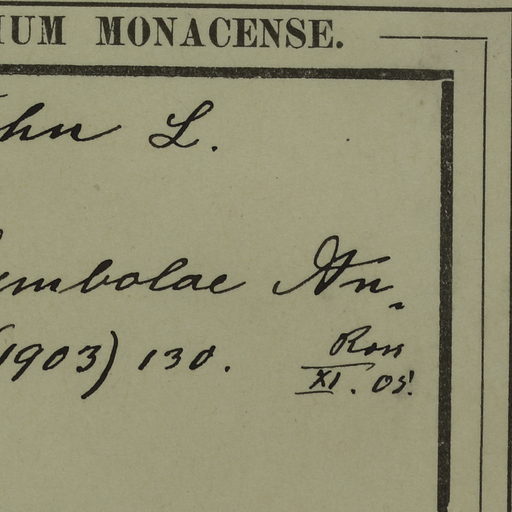 IUM MONACENSE.
hn L.
ymbolae An.
(1903) 130. Ross
XI. 05.